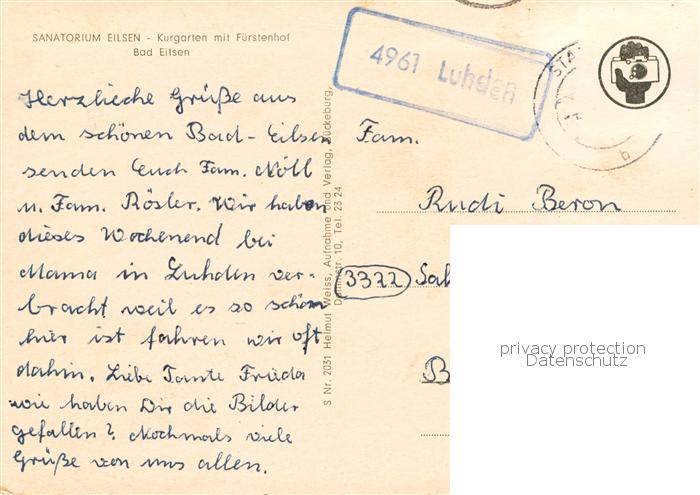 SANATORIUM EILSEN - Kurgarten mit Fürstenhof
Bad Eilsen
Herzlieche Grüße aus
dem schönen Bad-Eilsen
senden Euch Fam. Nöll
u. Fam. Rösler. Wir haben
dieses Wochenend bei
Mama in Luhden ver-
bracht weil es so schön
hier ist fahren wir oft
dahin. Liebe Tante Frieda
wie haben Dir die Bilder
gefallen? Nochmals viele
Grüße von uns allen.
S Nr. 2031 Helmut Weiss, Aufnahme und Verlag, Bückeburg,
Dammstr. 10, Tel. 23 24
4961 Luhden
STA
b
Fam.
Rudi Beron
3322 Sal
B
privacy protection
Datenschutz